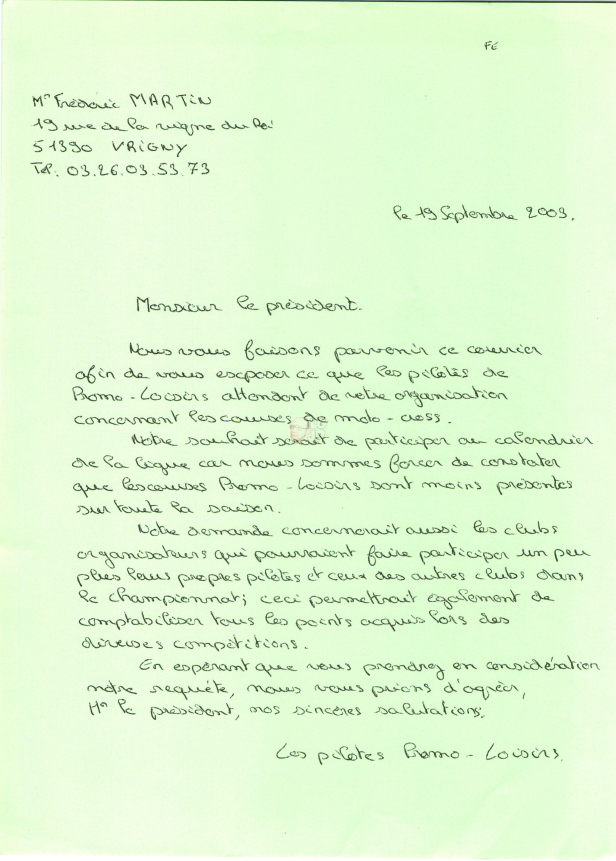 FE
Mr Fréderic MARTIN
19 rue de la vigne du Roi
51390 VRIGNY
Tel. 03.26.03.53.73
le 19 Septembre 2003.
Monsieur le président.
Nous vous faisons parvenir ce courrier
afin de vous exposer ce que les pilotes de
Promo - Loisirs attendent de votre organisation
concernant les courses de moto - cross.
Notre souhait serait de participer au calendrier
de la ligue car nous sommes forcer de constater
que les courses Promo - Loisirs sont moins présentes
sur toute la saison.
Notre demande concernerait aussi les clubs
organisateurs qui pourraient faire participer un peu
plus leurs propres pilotes et ceux des autres clubs dans
le championnat; ceci permettrait également de
comptabiliser tous les points acquis lors des
diverses compétitions.
En espérant que vous prendrez en considération
notre requête, nous vous prions d'agréer,
Mr le président, nos sincères salutations.
Les pilotes Promo - Loisirs.